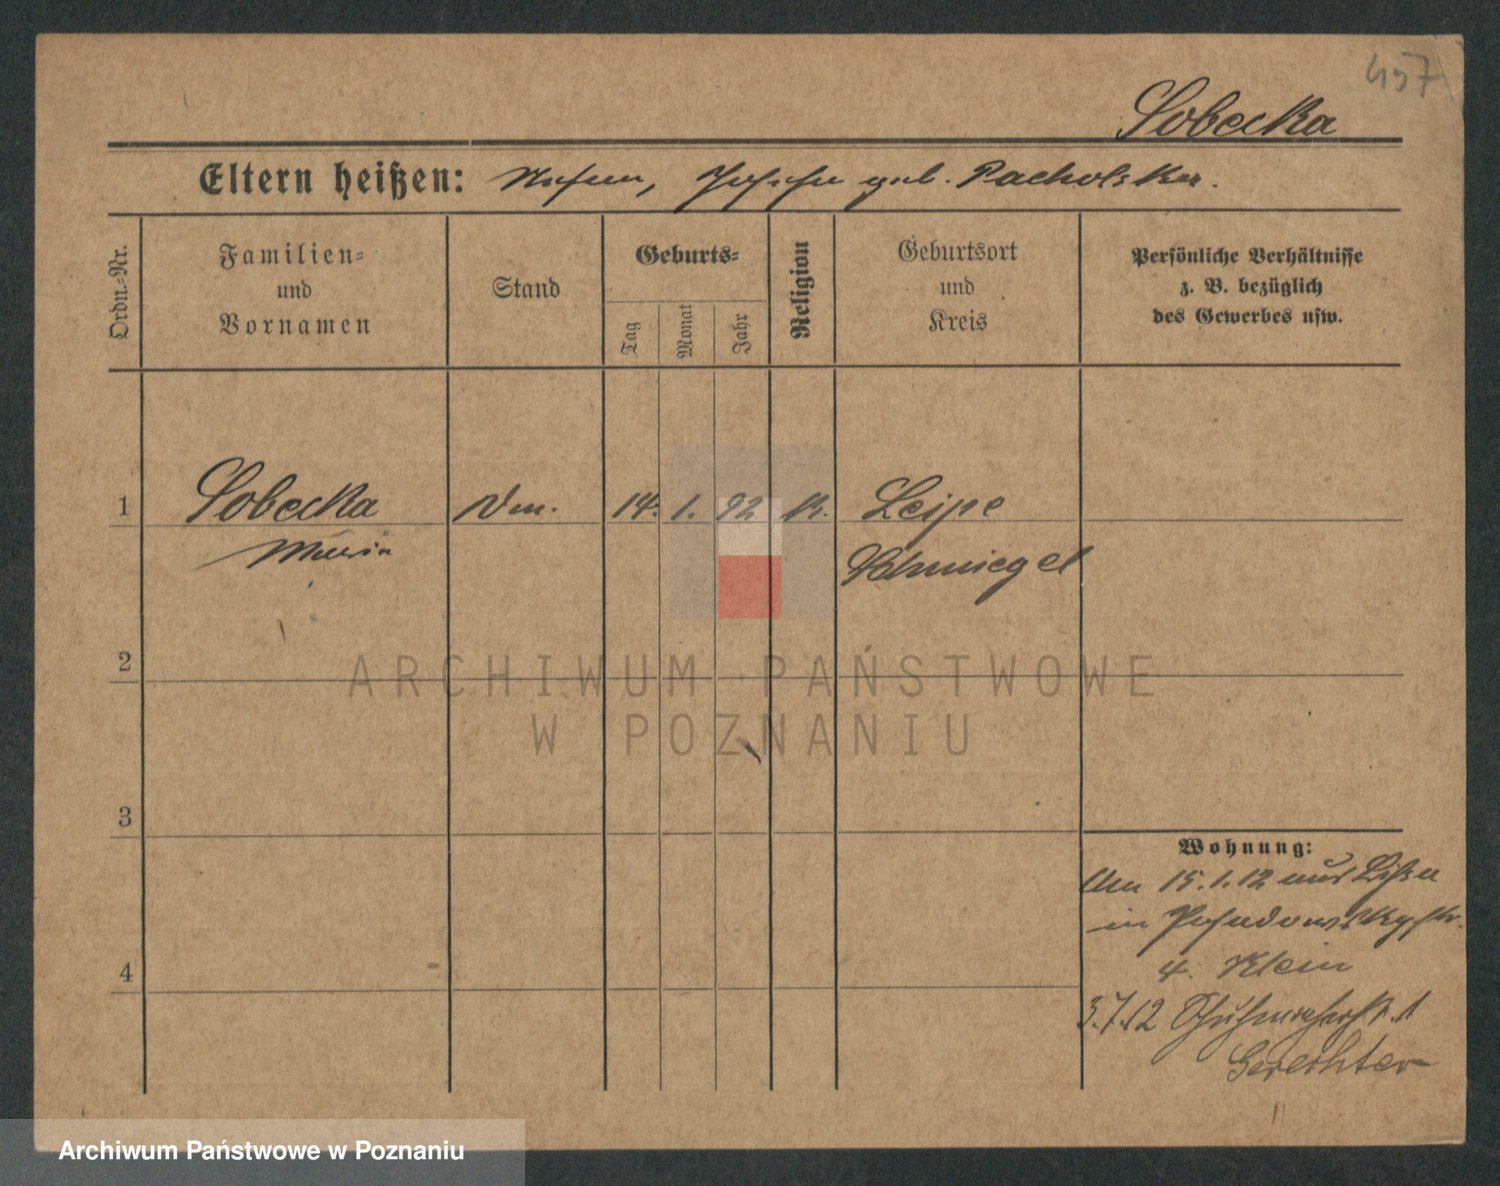 457
Sobecka
Eltern heißen: geb. Pacholska.
Ordn.-Nr.
Familien-
und
Vornamen
Stand
Geburts-
Tag
Monat
Jahr
Religion
Geburtsort
und
Kreis
Persönliche Verhältnisse
z. B. bezüglich
des Gewerbes usw.
1 Sobecka 14. 1. 92 K. Leipe
Maria Schmiegel
2
ARCHIWUM PAŃSTWOWE
W POZNANIU
3
Wohnung:
Am 15.1.12 aus Lissa
in Posadowskystr.
4. Klein
4
3.7.12 Schuhmacherstr. 1
Gerechter
Archiwum Państwowe w Poznaniu